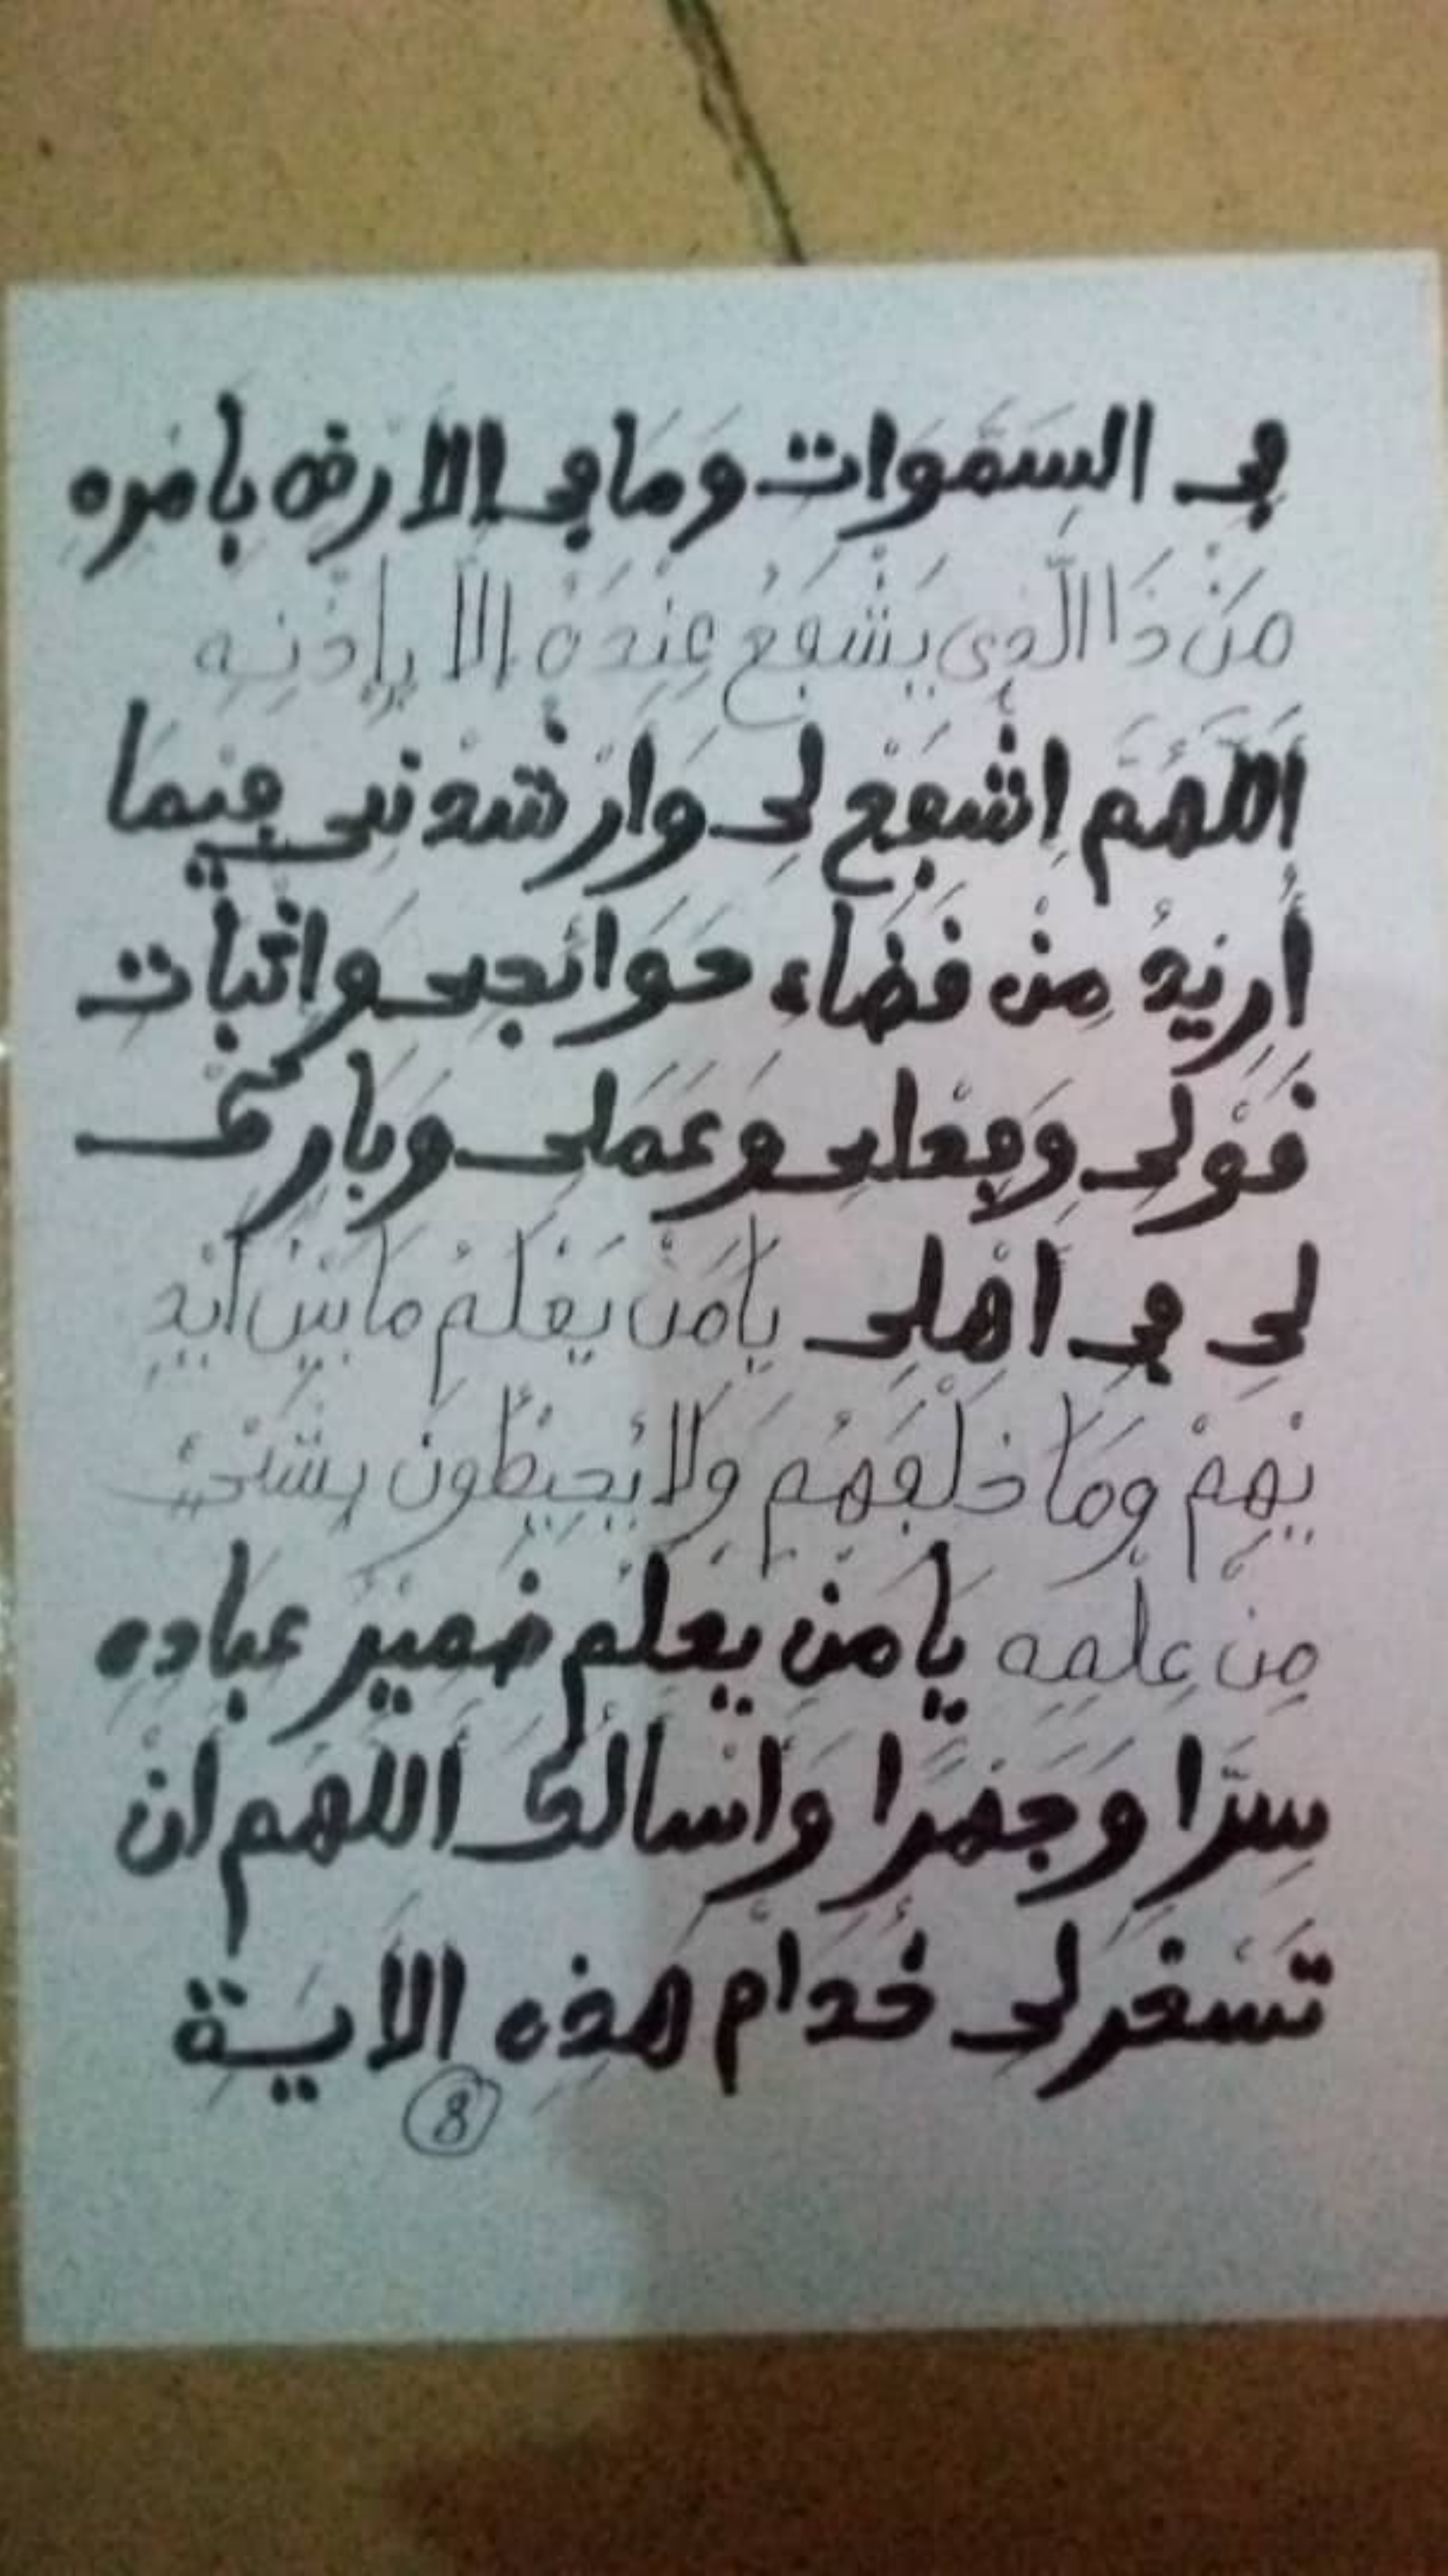 في السَّمَوَاتِ وَمَا فِي الاَرْضِ بِاَمْرِهِ
مَنْ ذَا الَّذِي يَشْفَعُ عِنْدَهُ اِلاَّ بِإِذْنِهِ
اَللَّهُمَّ اِشْفَعْ لِي وَارْشِدْنِي فِيمَا
أُرِيدُ مِنْ قَضَاءِ حَوَائِجِي وَاثْبَاتِ
قَوْلِي وَفِعْلِي وَعَمَلِي وَبَارِكْ
لِي فِي اَهْلِي يَا مَنْ يَعْلَمُ مَا بَيْنَ اَيْدِ
يْهِمْ وَمَا خَلْفَهُمْ وَلَا يُحِيطُونَ بِشَيْءٍ
مِنْ عِلْمِهِ يَا مَنْ يَعْلَمُ ضَمِيْرَ عِبَادِهِ
سِرًّا وَجَهْرًا وَأَسْأَلُكَ اَللَّهُمَّ اَنْ
تُسَخِّرَ لِي خُدَّامَ هَذِهِ الاَيَةِ
8